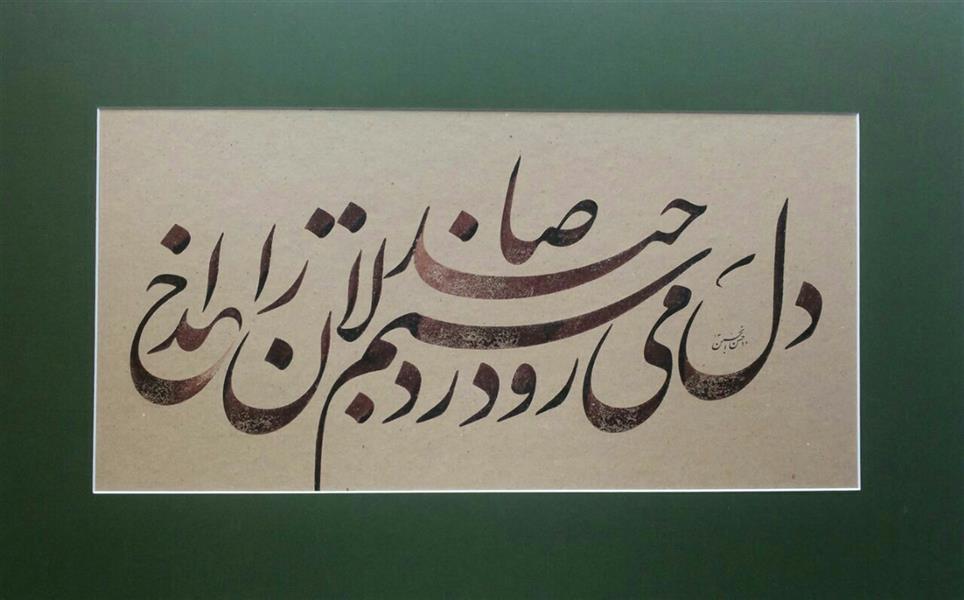 دل می رود ز دستم صاحبدلان خدا را